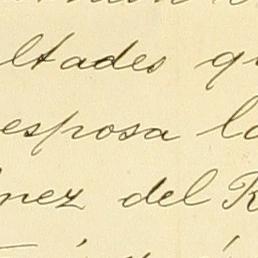 ltades qu
esposa lo
nez del R